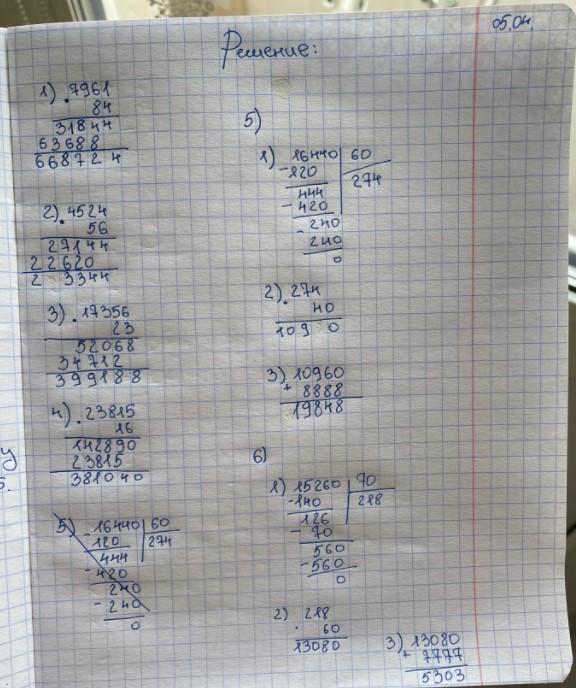 05.04.
Решение:
1) . 7961
84
31844
63688
668724
2) . 4524
56
27144
22620
2 3344
3) . 17356
23
52068
34712
399188
4) . 23815
16
142890
23815
381040
5) - 16440 | 60
120 | 274
444
- 420
240
- 240
0
5)
1) 16440 | 60
- 120 | 274
444
- 420
240
- 240
0
2) . 274
40
109 0
3) 10960
+ 8888
19848
6)
1) 15260 | 70
- 140 | 218
126
- 70
560
- 560
0
2) 218
. 60
13080
3) 13080
+ 7777
5303
у
5.